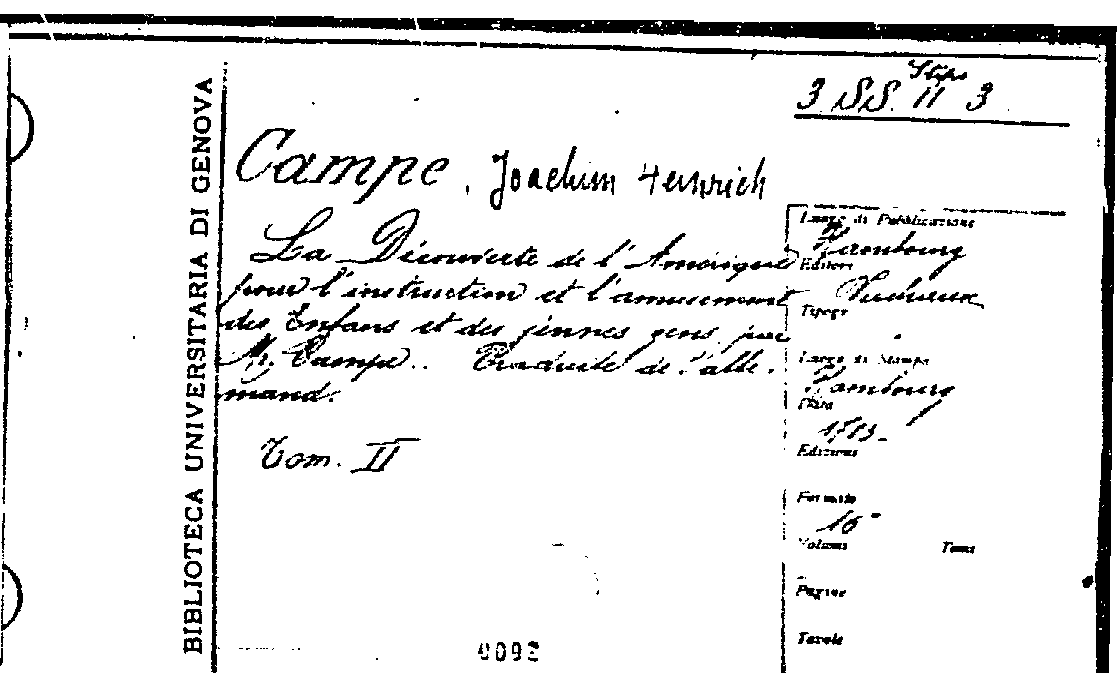 BIBLIOTECA UNIVERSITARIA DI GENOVA
3 SS. II 3
Campe, Joachim Heinrich
La Découverte de l'Amérique
pour l'instruction et l'amusement
des Enfans et des jeunes gens, par
Mr. Campe.. Traduite de l'alle-
mand.
Tom. II
Luogo di Pubblicazione
Hambourg
Editore
Tipogr
Luogo di Stampa
Hambourg
Data
Edizione
Formato
16°
Volumi Tomi
Pagine
Tavole
0092